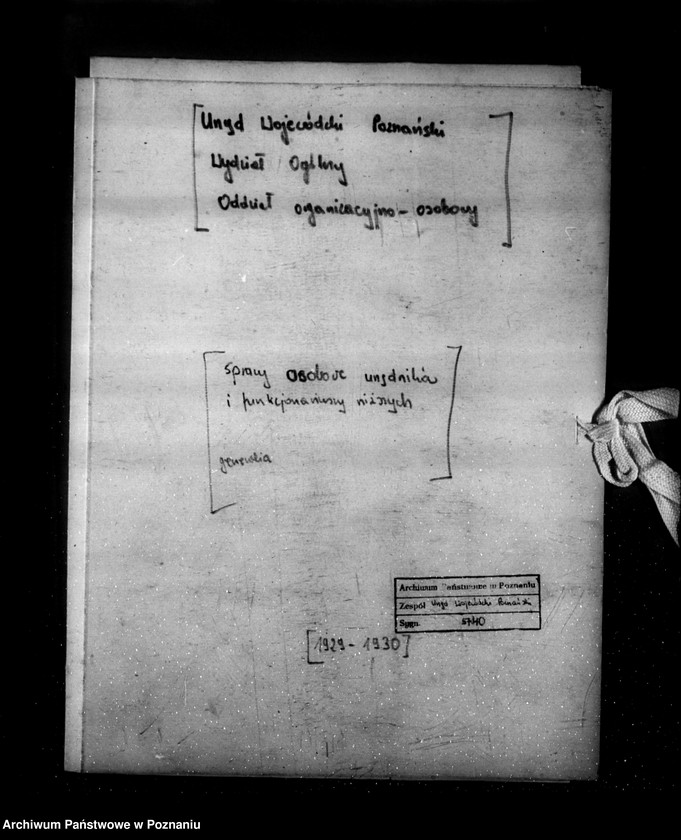 [Urząd Wojewódzki Poznański
Wydział Ogólny
Oddział organizacyjno-osobowy]
[sprawy osobowe urzędników
i funkcjonariuszy niższych
generalia]
Archiwum Państwowe w Poznaniu
Zespół Urząd Wojewódzki Poznański
Sygn. 5740
[1929-1930]
Archiwum Państwowe w Poznaniu